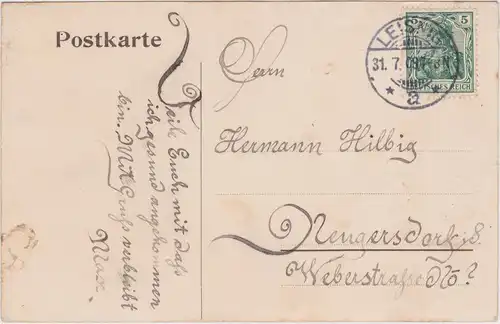 Postkarte
Teile Euch mit daß
ich gesund angekommen
bin. Mit Gruß verbleibt
Max.
LEISNIG
31. 7. 09
a
5
DEUTSCHES REICH
Herrn
Hermann Hilbig
Neugersdorf i. S.
Weberstrasse No ?